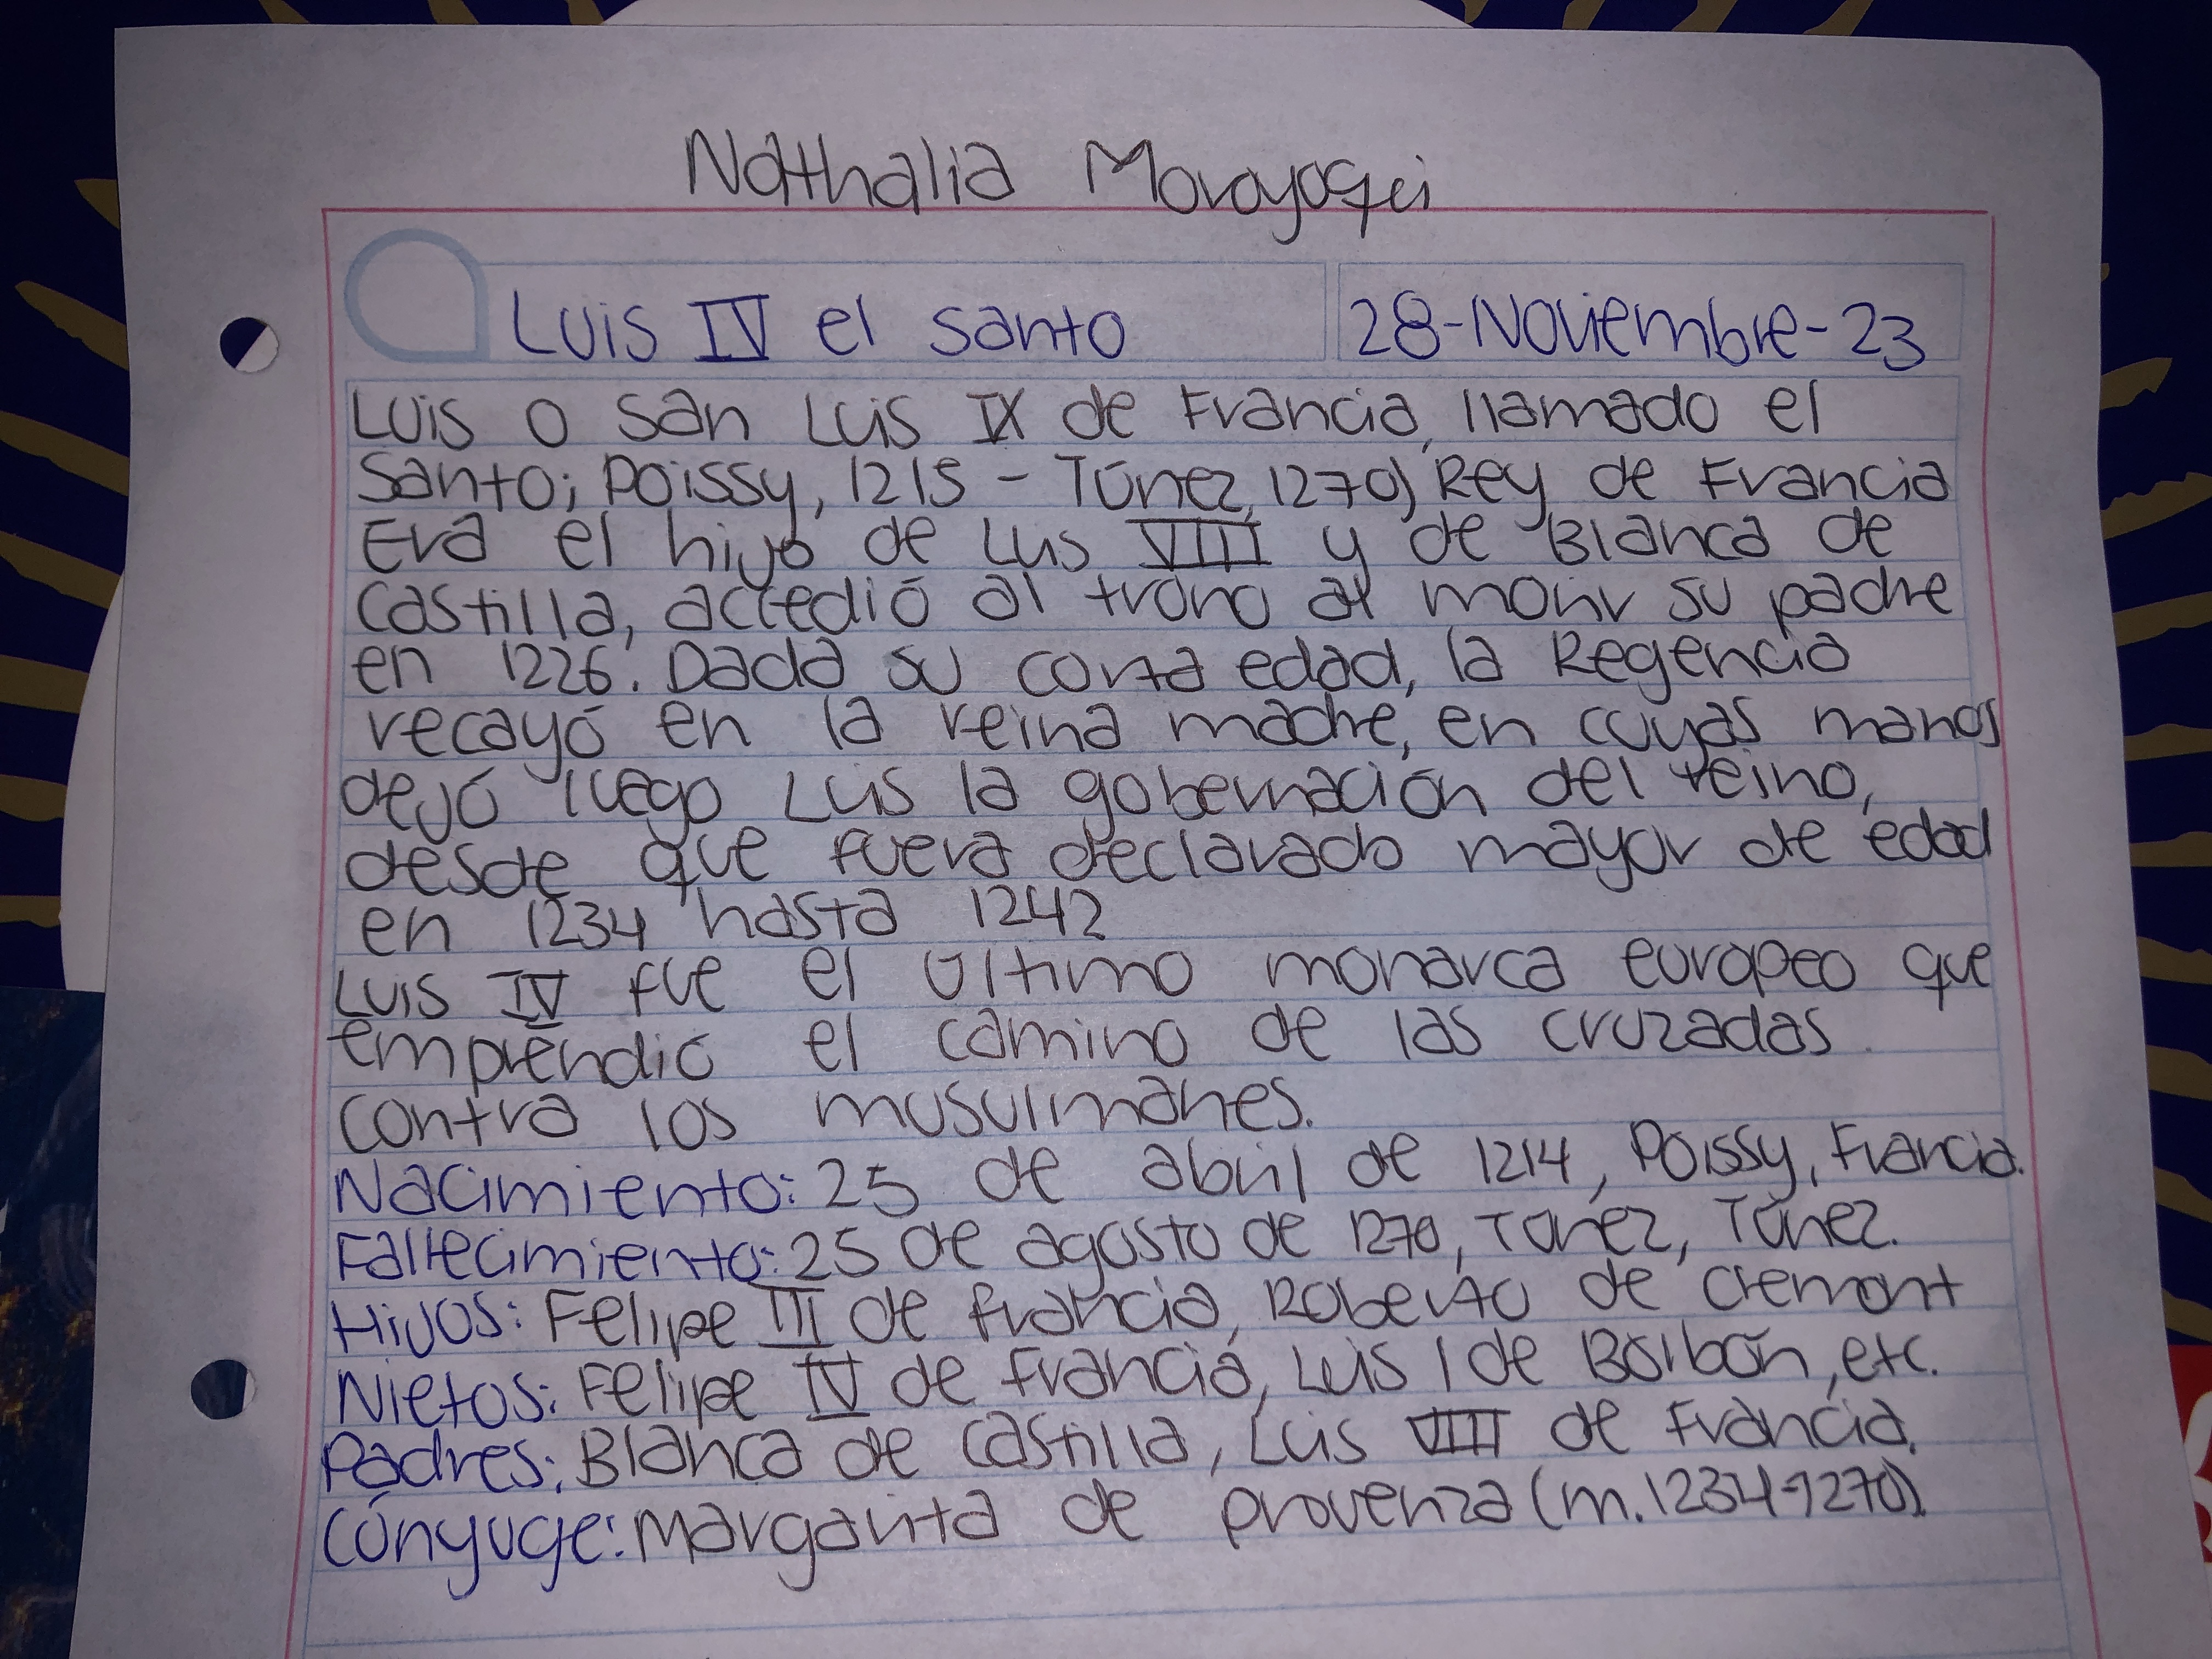 Nathalia Moroyoqui
Luis IV el santo
28-Noviembre-23
Luis o San Luis IX de Francia, llamado el
Santo; Poissy, 1215 - Túnez, 1270) Rey de Francia
Era el hijo de Luis VIII y de Blanca de
Castilla, accedió al trono al morir su padre
en 1226. Dada su corta edad, la Regencia
recayó en la reina madre, en cuyas manos
dejó luego Luis la gobernación del reino,
desde que fuera declarado mayor de edad
en 1234 hasta 1242
Luis IV fue el último monarca europeo que
emprendió el camino de las cruzadas
contra los musulmanes.
Nacimiento: 25 de abril de 1214, Poissy, Francia.
Fallecimiento: 25 de agosto de 1270, Túnez, Túnez.
Hijos: Felipe III de francia, Roberto de Clemont
Nietos: Felipe IV de francia, Luis I de Borbón, etc.
Padres: Blanca de Castilla, Luis VIII de Francia.
Cónyuge: Margarita de provenza (m. 1234-1270)